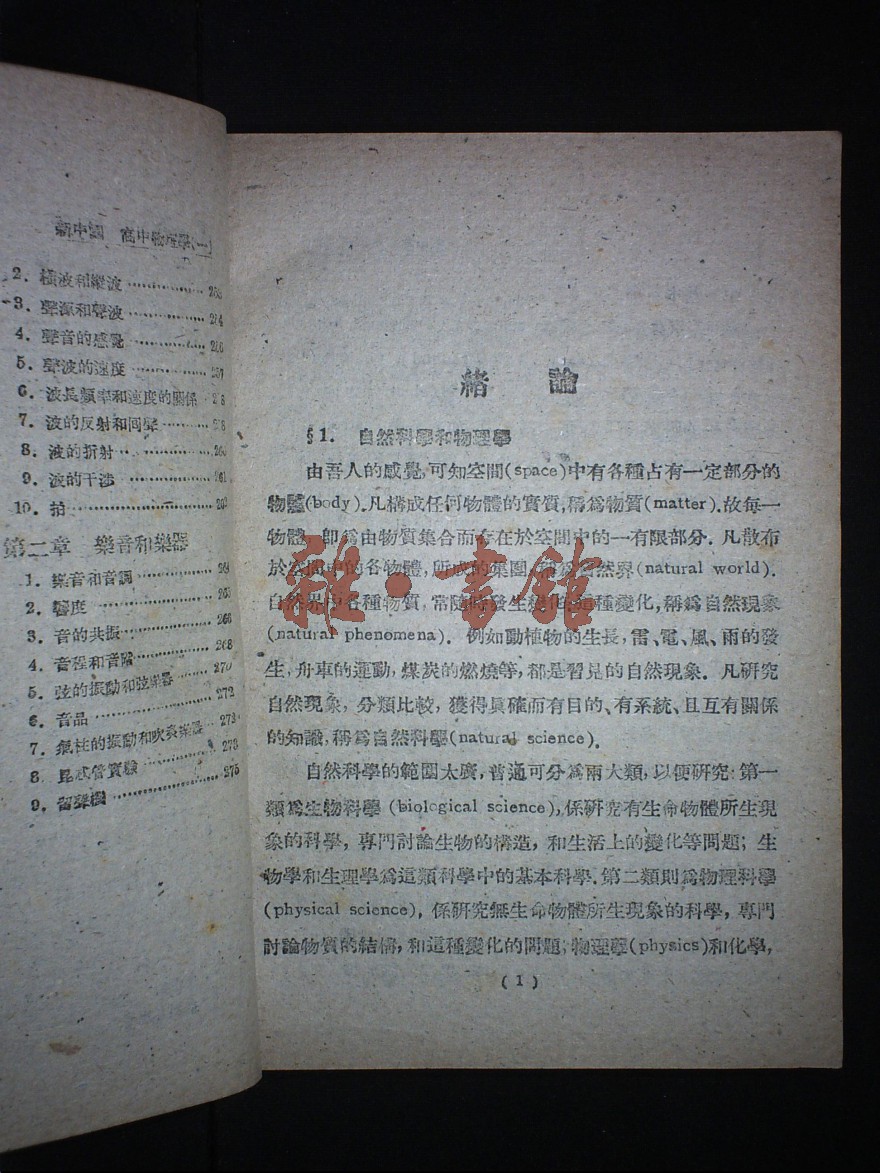 新中國 高中物理學(一)
2. 橫波和縱波
3. 聲源和聲波 254
4. 聲音的感覺 256
5. 聲波的速度 257
6. 波長頻率和速度的關係
7. 波的反射和回聲
8. 波的折射 260
9. 波的干涉 261
10. 拍
第二章 樂音和樂器
1. 樂音和音調 264
2. 響度 265
3. 音的共振 266
4. 音程和音階 268
5. 弦的振動和弦樂器 270
6. 音品 272
7. 氣柱的振動和吹奏樂器 272
8. 昆忒管實驗 273
9. 留聲機 275
緒 論
§1. 自然科學和物理學
由吾人的感覺,可知空間(space)中有各種占有一定部分的
物體(body).凡構成任何物體的實質,稱爲物質(matter).故每一
物體,卽爲由物質集合而存在於空間中的一有限部分.凡散布
於空間中的各物體,所成的集團,稱爲自然界(natural world).
自然界中各種物質,常隨時發生變化;這種變化,稱爲自然現象
(natural phenomena). 例如動植物的生長,雷、電、風、雨的發
生,舟車的運動,煤炭的燃燒等,都是習見的自然現象. 凡研究
自然現象,分類比較,獲得眞確而有目的、有系統、且互有關係
的知識,稱爲自然科學(natural science).
自然科學的範圍太廣,普通可分爲兩大類,以便研究:第一
類爲生物科學(biological science),係研究有生命物體所生現
象的科學,專門討論生物的構造,和生活上的變化等問題;生
物學和生理學爲這類科學中的基本科學.第二類則爲物理科學
(physical science),係研究無生命物體所生現象的科學,專門
討論物質的結構,和這種變化的問題;物理學(physics)和化學,
(1)
雅·書館